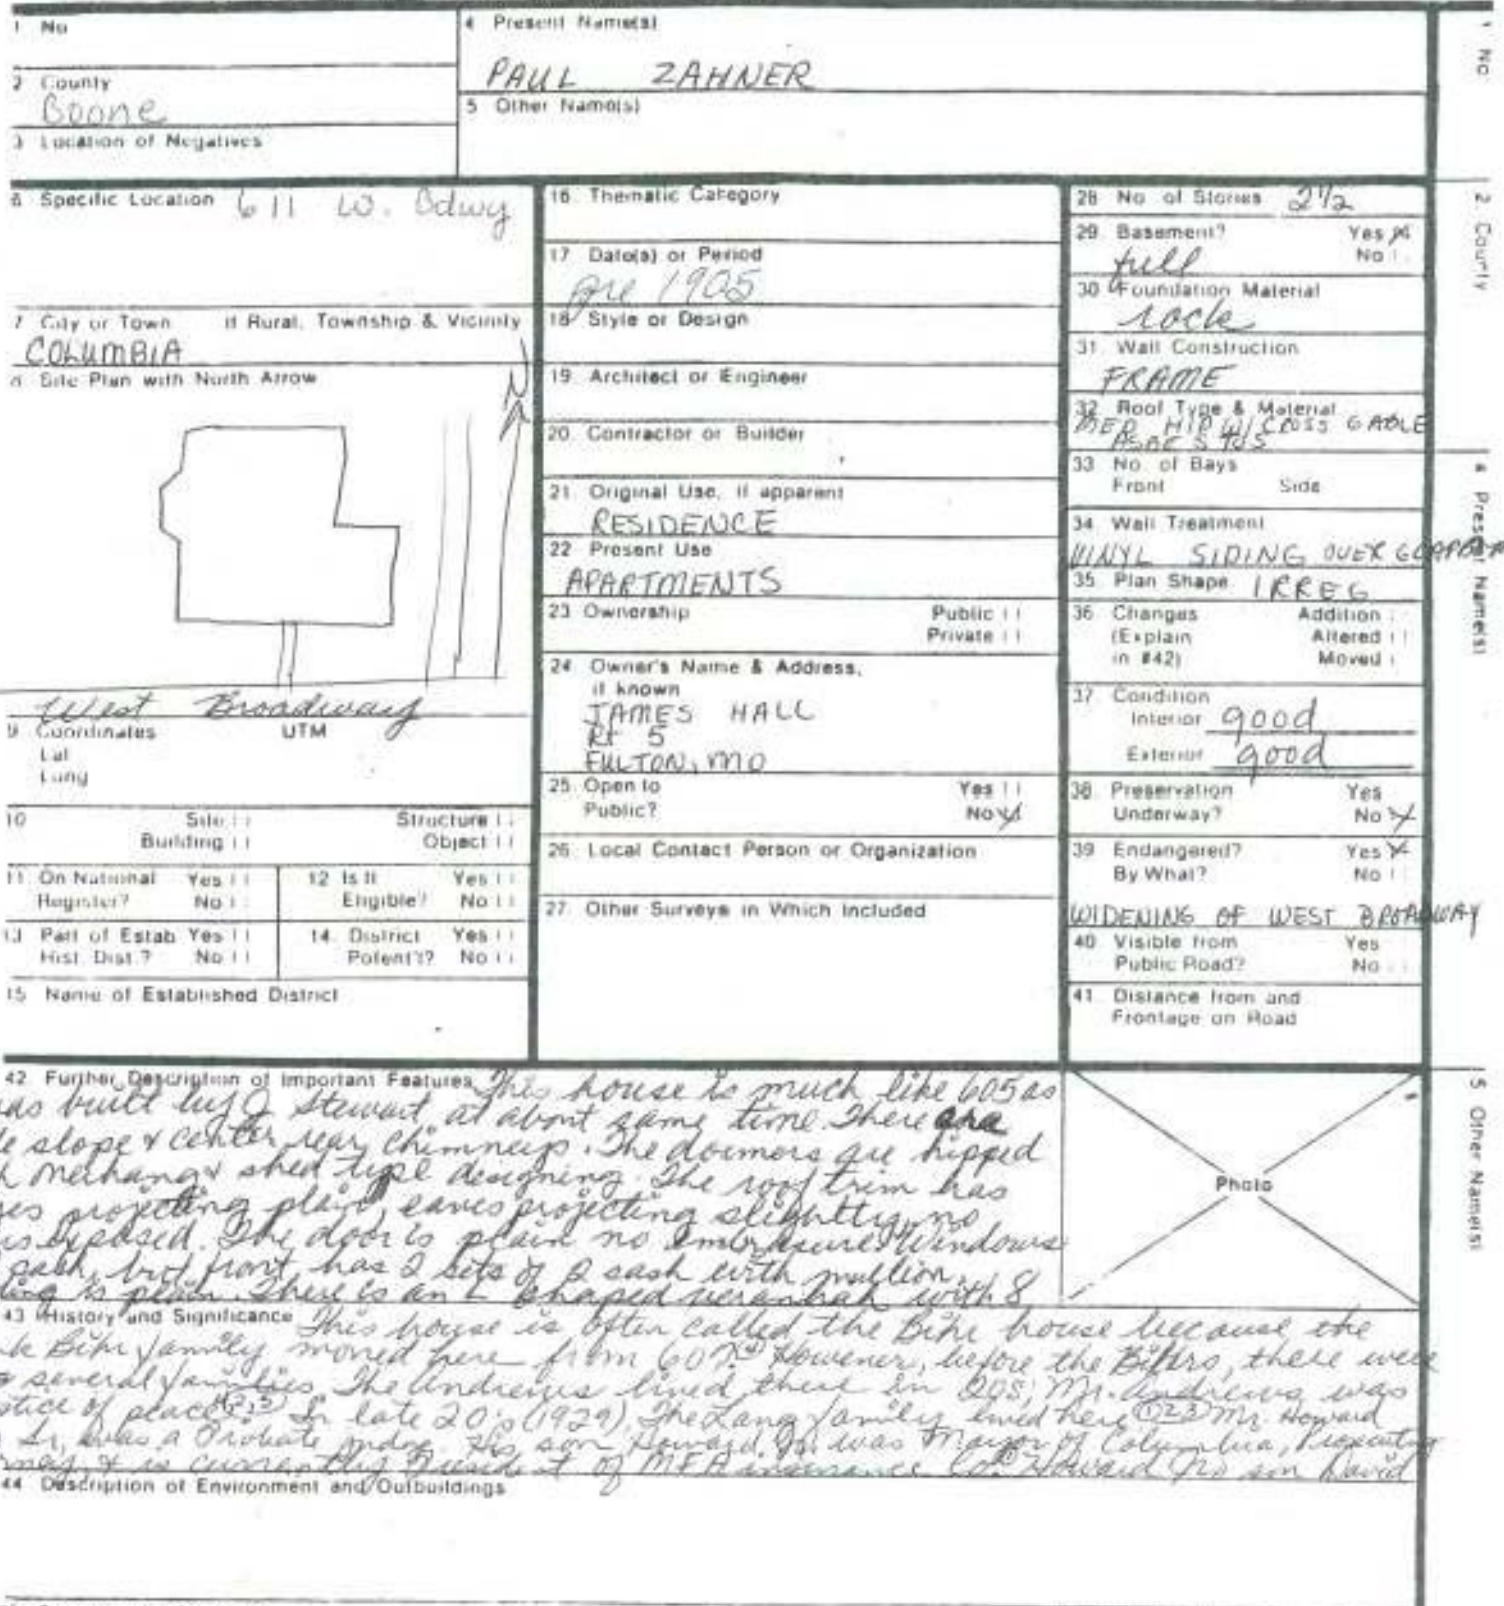 1 No
4 Present Name(s)
PAUL ZAHNER
2 County
Boone
5 Other Name(s)
3 Location of Negatives
1 No
2 County
4 Present Name(s)
5 Other Name(s)
6 Specific Location 611 W. Bdwy
7 City or Town If Rural, Township & Vicinity
COLUMBIA
8 Site Plan with North Arrow
N
West Broadway
9 Coordinates UTM
Lat
Long
10 Site Structure
Building Object
11 On National Yes
Register? No
12 Is It Yes
Eligible? No
13 Part of Estab Yes
Hist. Dist.? No
14 District Yes
Potent'l? No
15 Name of Established District
16 Thematic Category
17 Date(s) or Period
pre 1905
18 Style or Design
19 Architect or Engineer
20 Contractor or Builder
21 Original Use, if apparent
RESIDENCE
22 Present Use
APARTMENTS
23 Ownership Public
Private
24 Owner's Name & Address,
if known
JAMES HALL
Rt 5
FULTON, MO
25 Open to Yes
Public? No X
26 Local Contact Person or Organization
27 Other Surveys in Which Included
28 No. of Stories 2 1/2
29 Basement? Yes X
full No
30 Foundation Material
rock
31 Wall Construction
FRAME
32 Roof Type & Material
MED HIP W/ CROSS GABLE
ASBESTOS
33 No. of Bays
Front Side
34 Wall Treatment
VINYL SIDING OVER
35 Plan Shape IRREG
36 Changes Addition
(Explain Altered
in #42) Moved
37 Condition
Interior good
Exterior good
38 Preservation Yes
Underway? No X
39 Endangered? Yes X
By What? No
WIDENING OF WEST BROADWAY
40 Visible from Yes
Public Road? No
41 Distance from and
Frontage on Road
42 Further Description of Important Features This house is much like 605 as
built by J Stewart at about same time. There are
slope & center rear chimneys. The dormers are hipped
& shed type designing. The roof trim has
projecting plain, eaves projecting slightly, no
exposed. The door is plain no embrasure. Windows
sash, but front has 2 sets of 2 sash with mullion.
is plain. There is an L shaped verandah with 8
Photo
43 History and Significance This house is often called the Bihr house because the
Bihr family moved here from 607. However, before the Bihrs, there were
several families. The Andrews lived there in 20s; Mr. Andrews was
of peace. In late 20's (1929). The Lang family lived here 1 2 3 Mr. Howard
Sr, was a Probate judge. His son Howard Jr. was Mayor of Columbia, Prosecuting
& is currently President of MFA insurance Co. Howard Jr's son David
44 Description of Environment and Outbuildings